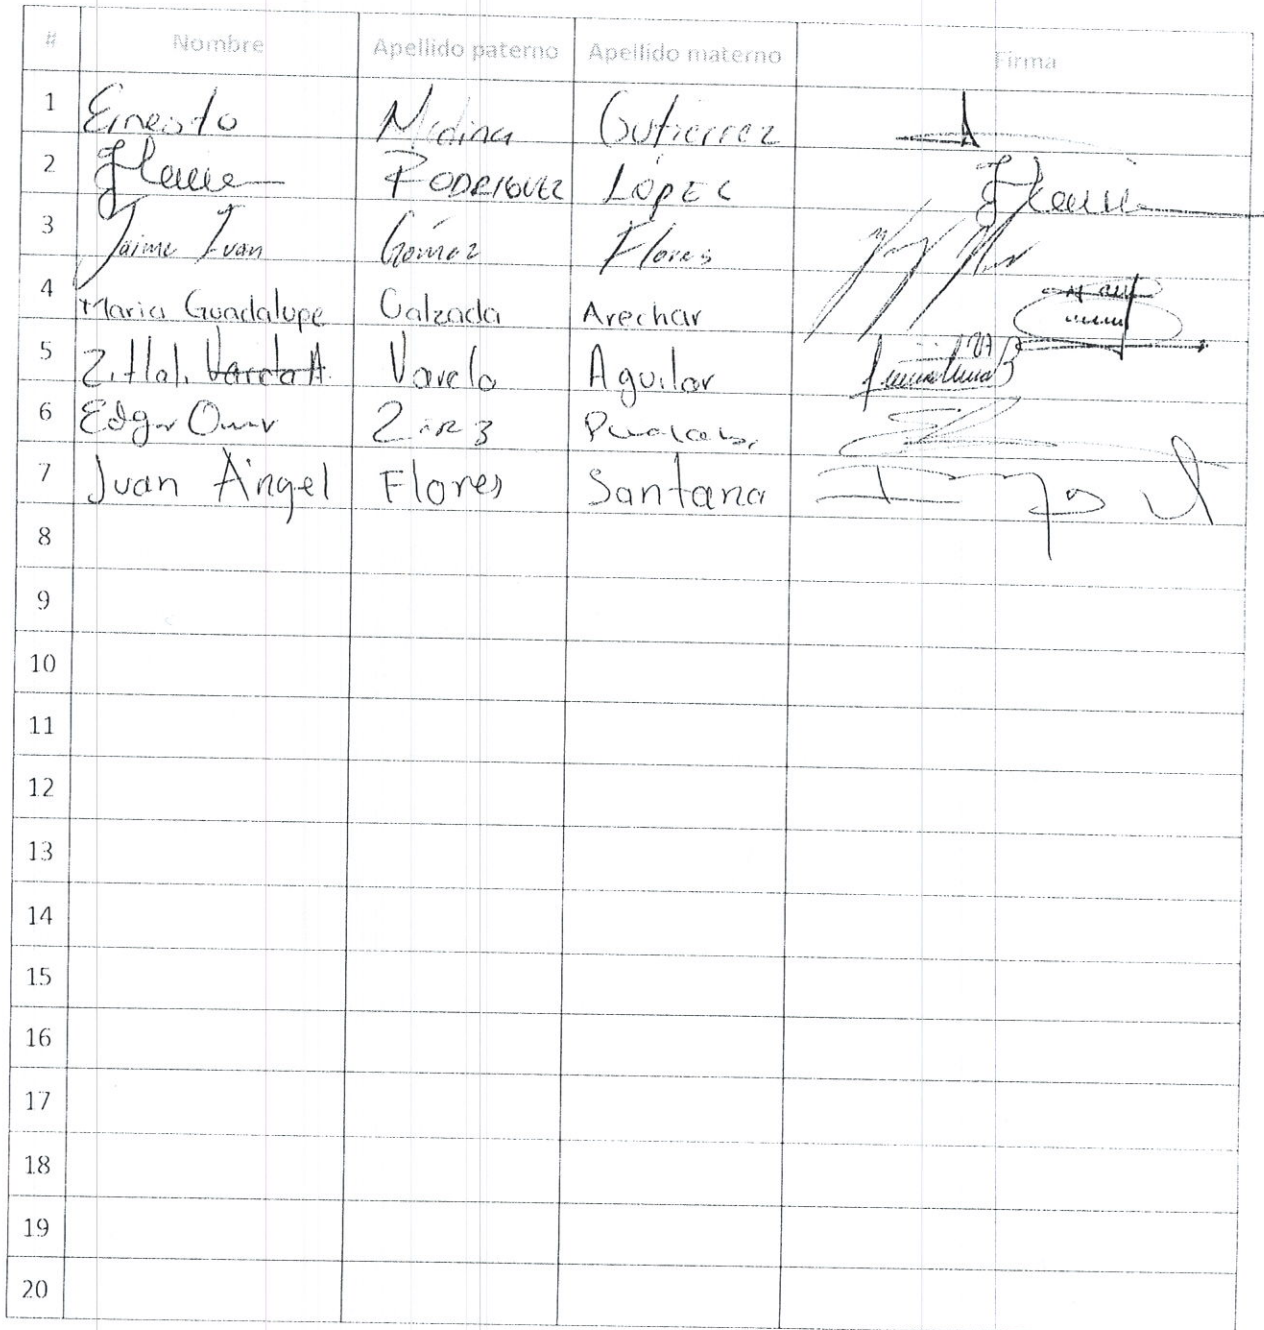 # Nombre Apellido paterno Apellido materno Firma
1 Ernesto Medina Gutierrez
2 RODRIGUEZ LÓPEZ
3 Jaime Ivan Gómez Flores
4 Maria Guadalupe Calzada Arechar
5 Zitlali Varela A. Varela Aguilar
6 Edgar Omar
7 Juan Ángel Flores Santana
8
9
10
11
12
13
14
15
16
17
18
19
20